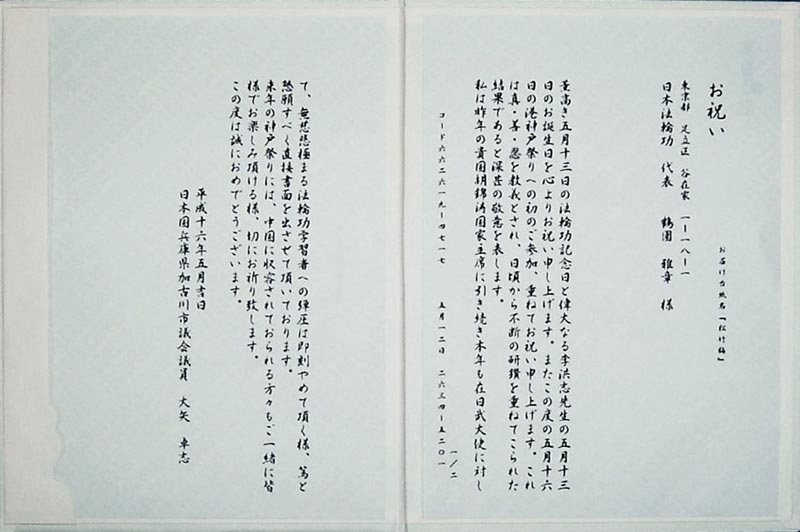 お祝い
お届け台紙名「松竹梅」
東京都 足立区 谷在家 一ー一八ー一
日本法輪功 代表 鶴園 雅章 様
薫高き五月十三日の法輪功記念日と偉大なる李洪志先生の五月十三
日のお誕生日を心よりお祝い申し上げます。またこの度の五月十六
日の港神戸祭りへの初のご参加、重ねてお祝い申し上げます。これ
は真・善・忍を教義とされ、日頃から不断の研鑚を重ねてこられた
結果であると深甚の敬意を表します。
私は昨年の貴国胡錦涛国家主席に引き続き本年も在日武大使に対し
一/二
コード六六二六一九ー四七一七 五月一二日 二六三四ー五二〇一
て、無慈悲極まる法輪功学習者への弾圧は即刻やめて頂く様、篤と
懇願すべく直接書面を出させて頂いております。
来年の神戸祭りには、中国に収容されておられる方々もご一緒に皆
様でお楽しみ頂ける様、切にお祈り致します。
この度は誠におめでとうございます。
平成十六年五月吉日
日本国兵庫県加古川市議会議員 大矢 卓志